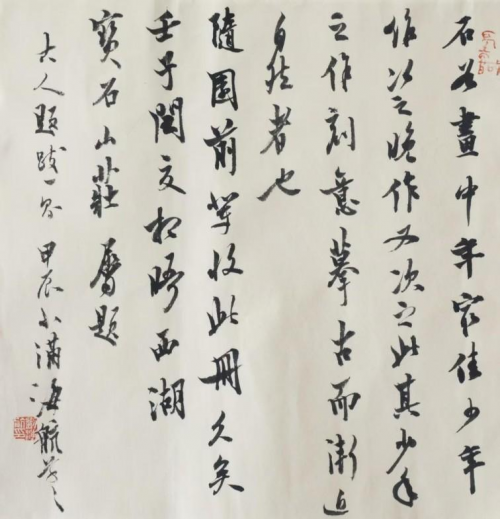 石谷畫中年宷佳少年
作次之晚作又次之此其少年
之作刻意摹古而漸近
自然者也
隨園前輩收此冊久矣
壬子閏文相晤西湖
寶石山莊屬題
古人題跋一則 甲辰小滿 海航書之